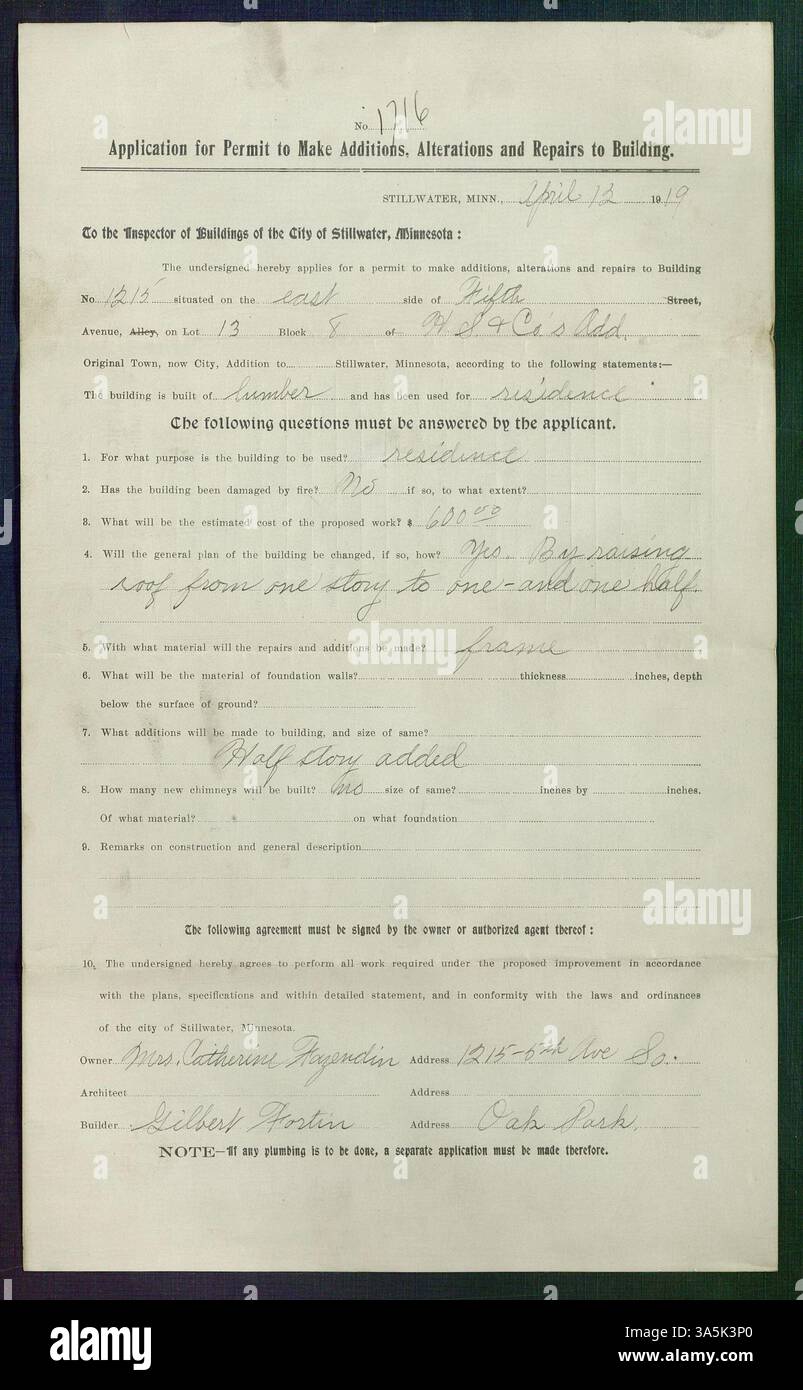 No. 1716
Application for Permit to Make Additions, Alterations and Repairs to Building.
STILLWATER, MINN., April 12 1919
To the Inspector of Buildings of the City of Stillwater, Minnesota:
The undersigned hereby applies for a permit to make additions, alterations and repairs to Building
No. 1215 situated on the east side of Fifth Street,
Avenue, Alley, on Lot 13 Block 8 of H S & Co's Add.
Original Town, now City, Addition to Stillwater, Minnesota, according to the following statements:—
The building is built of lumber and has been used for residence
The following questions must be answered by the applicant.
1. For what purpose is the building to be used? residence
2. Has the building been damaged by fire? No if so, to what extent?
3. What will be the estimated cost of the proposed work? $ 600.00
4. Will the general plan of the building be changed, if so, how? Yes. By raising
roof from one story to one-and one half.
5. With what material will the repairs and additions be made? frame
6. What will be the material of foundation walls? thickness inches, depth
below the surface of ground?
7. What additions will be made to building, and size of same?
Half story added
8. How many new chimneys will be built? no size of same? inches by inches.
Of what material? on what foundation
9. Remarks on construction and general description
The following agreement must be signed by the owner or authorized agent thereof:
10. The undersigned hereby agrees to perform all work required under the proposed improvement in accordance
with the plans, specifications and within detailed statement, and in conformity with the laws and ordinances
of the city of Stillwater, Minnesota.
Owner Mrs. Catherine Fazendin Address 1215-5th Ave So.
Architect Address
Builder Gilbert Fortin Address Oak Park.
NOTE—If any plumbing is to be done, a separate application must be made therefore.
alamy
alamy
alamy
alamy
alamy
Image ID: 3A5K3P0
www.alamy.com